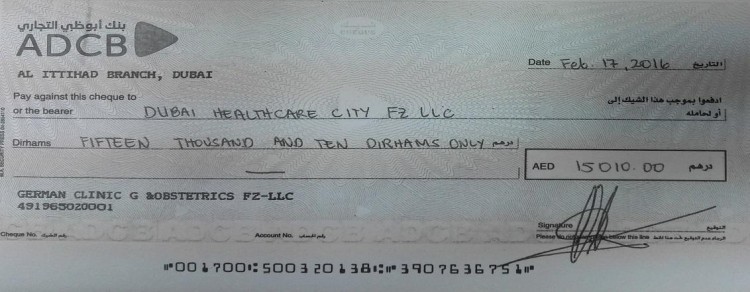 بنك أبوظبي التجاري
ADCB
AL ITTIHAD BRANCH, DUBAI
Date Feb. 17, 2016 التاريخ
Pay against this cheque to ادفعوا بموجب هذا الشيك إلى
or the bearer DUBAI HEALTHCARE CITY FZ LLC أو لحامله
Dirhams FIFTEEN THOUSAND AND TEN DIRHAMS ONLY درهم
AED 15010.00 درهم
GERMAN CLINIC G &OBSTETRICS FZ-LLC
491965020001
Signature التوقيع
Please below this line
Cheque No. رقم الشيك Account No. رقم الحساب
⑈001700⑆500320138⑆⑈3907636751⑈